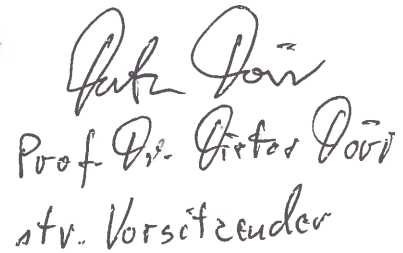 Dieter Dörr
Prof. Dr. Dieter Dörr
stv. Vorsitzender